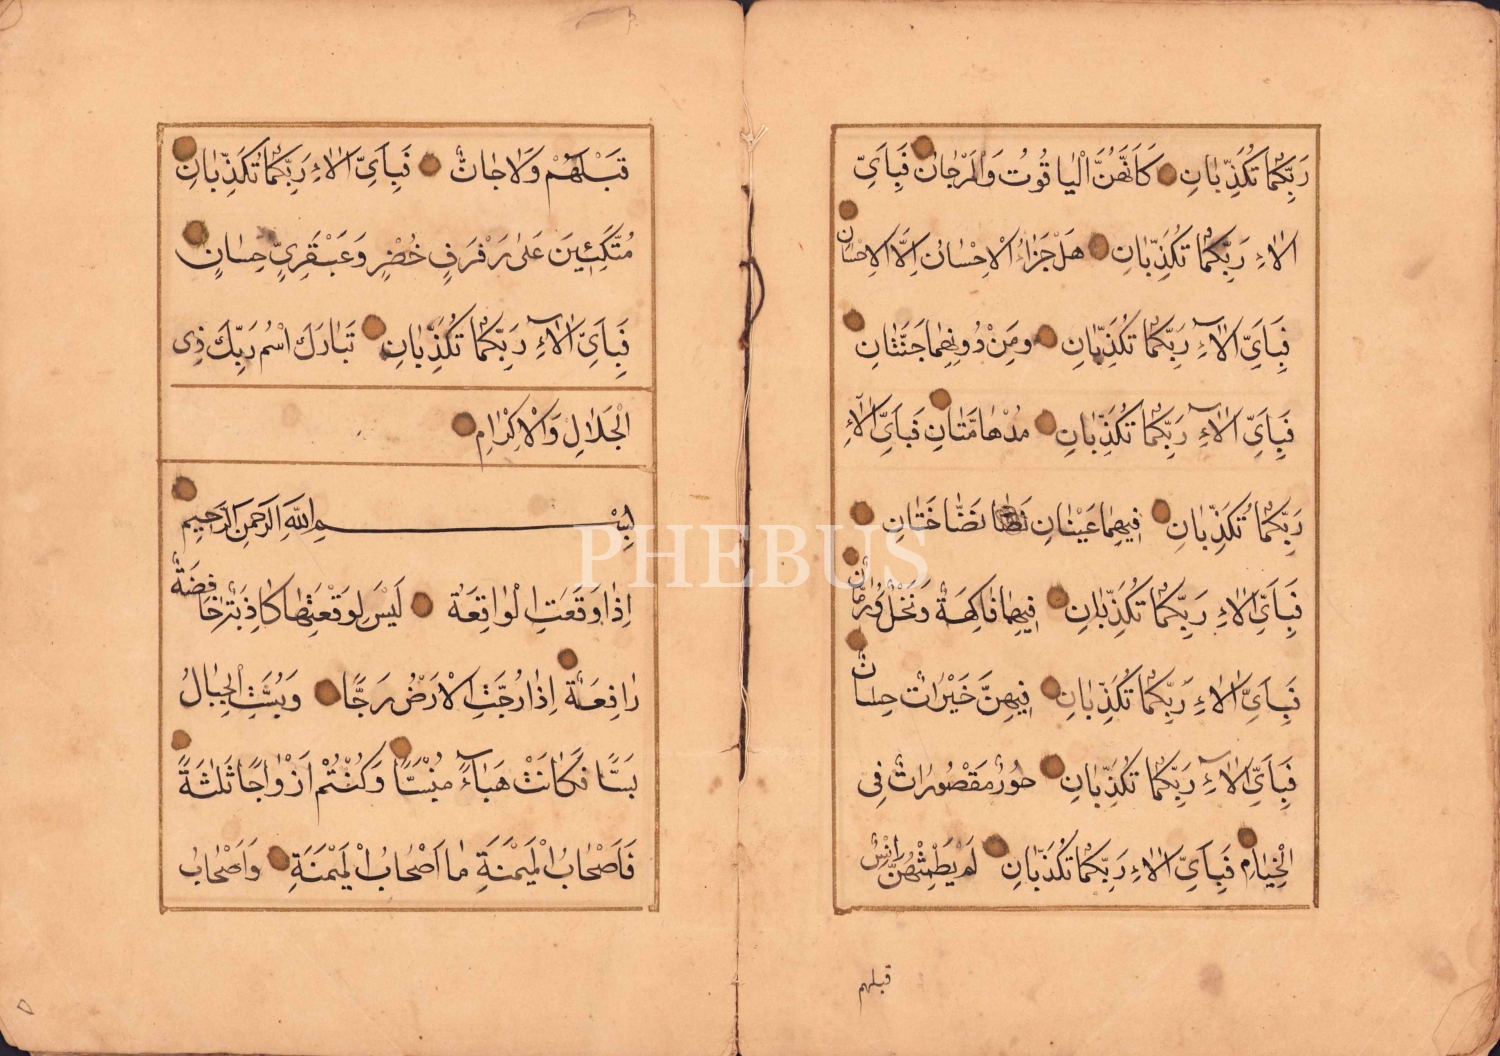 رَبِّكُمَا تُكَذِّبَانِ كَاَنَّهُنَّ الْيَاقُوتُ وَالْمَرْجَانُ فَبِاَيِّ
اٰلَاءِ رَبِّكُمَا تُكَذِّبَانِ هَلْ جَزَاءُ الْاِحْسَانِ اِلَّا الْاِحْسَانُ
فَبِاَيِّ اٰلَاءِ رَبِّكُمَا تُكَذِّبَانِ وَمِنْ دُونِهِمَا جَنَّتَانِ
فَبِاَيِّ اٰلَاءِ رَبِّكُمَا تُكَذِّبَانِ مُدْهَامَّتَانِ فَبِاَيِّ اٰلَاءِ
رَبِّكُمَا تُكَذِّبَانِ فِيهِمَا عَيْنَانِ نَضَّاخَتَانِ
فَبِاَيِّ اٰلَاءِ رَبِّكُمَا تُكَذِّبَانِ فِيهِمَا فَاكِهَةٌ وَنَخْلٌ وَرُمَّانٌ
فَبِاَيِّ اٰلَاءِ رَبِّكُمَا تُكَذِّبَانِ فِيهِنَّ خَيْرَاتٌ حِسَانٌ
فَبِاَيِّ اٰلَاءِ رَبِّكُمَا تُكَذِّبَانِ حُورٌ مَقْصُورَاتٌ فِى
الْخِيَامِ فَبِاَيِّ اٰلَاءِ رَبِّكُمَا تُكَذِّبَانِ لَمْ يَطْمِثْهُنَّ اِنْسٌ
قبلهم
قَبْلَهُمْ وَلَا جَانٌّ فَبِاَيِّ اٰلَاءِ رَبِّكُمَا تُكَذِّبَانِ
مُتَّكِـِٔينَ عَلٰى رَفْرَفٍ خُضْرٍ وَعَبْقَرِيٍّ حِسَانٍ
فَبِاَيِّ اٰلَاءِ رَبِّكُمَا تُكَذِّبَانِ تَبَارَكَ اسْمُ رَبِّكَ ذِى
الْجَلَالِ وَالْاِكْرَامِ
بِسْمِ اللّٰهِ الرَّحْمٰنِ الرَّحِيمِ
اِذَا وَقَعَتِ الْوَاقِعَةُ لَيْسَ لِوَقْعَتِهَا كَاذِبَةٌ خَافِضَةٌ
رَافِعَةٌ اِذَا رُجَّتِ الْاَرْضُ رَجًّا وَبُسَّتِ الْجِبَالُ
بَسًّا فَكَانَتْ هَبَاءً مُنْبَثًّا وَكُنْتُمْ اَزْوَاجًا ثَلٰثَةً
فَاَصْحَابُ الْمَيْمَنَةِ مَا اَصْحَابُ الْمَيْمَنَةِ وَاَصْحَابُ
PHEBUS